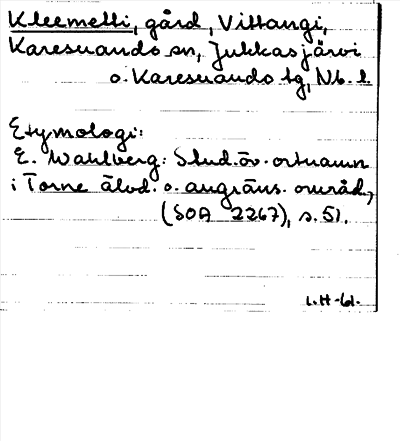 Kleemetti, gård, Vittangi,
Karesuando sn, Jukkasjärvi
o. Karesuando tg, Nb. l.
Etymologi:
E. Wahlberg: Stud. öv. ortnamn
i Torne älvd. o. angräns. område,
(SOA 2267), s. 51.
L.H -61.